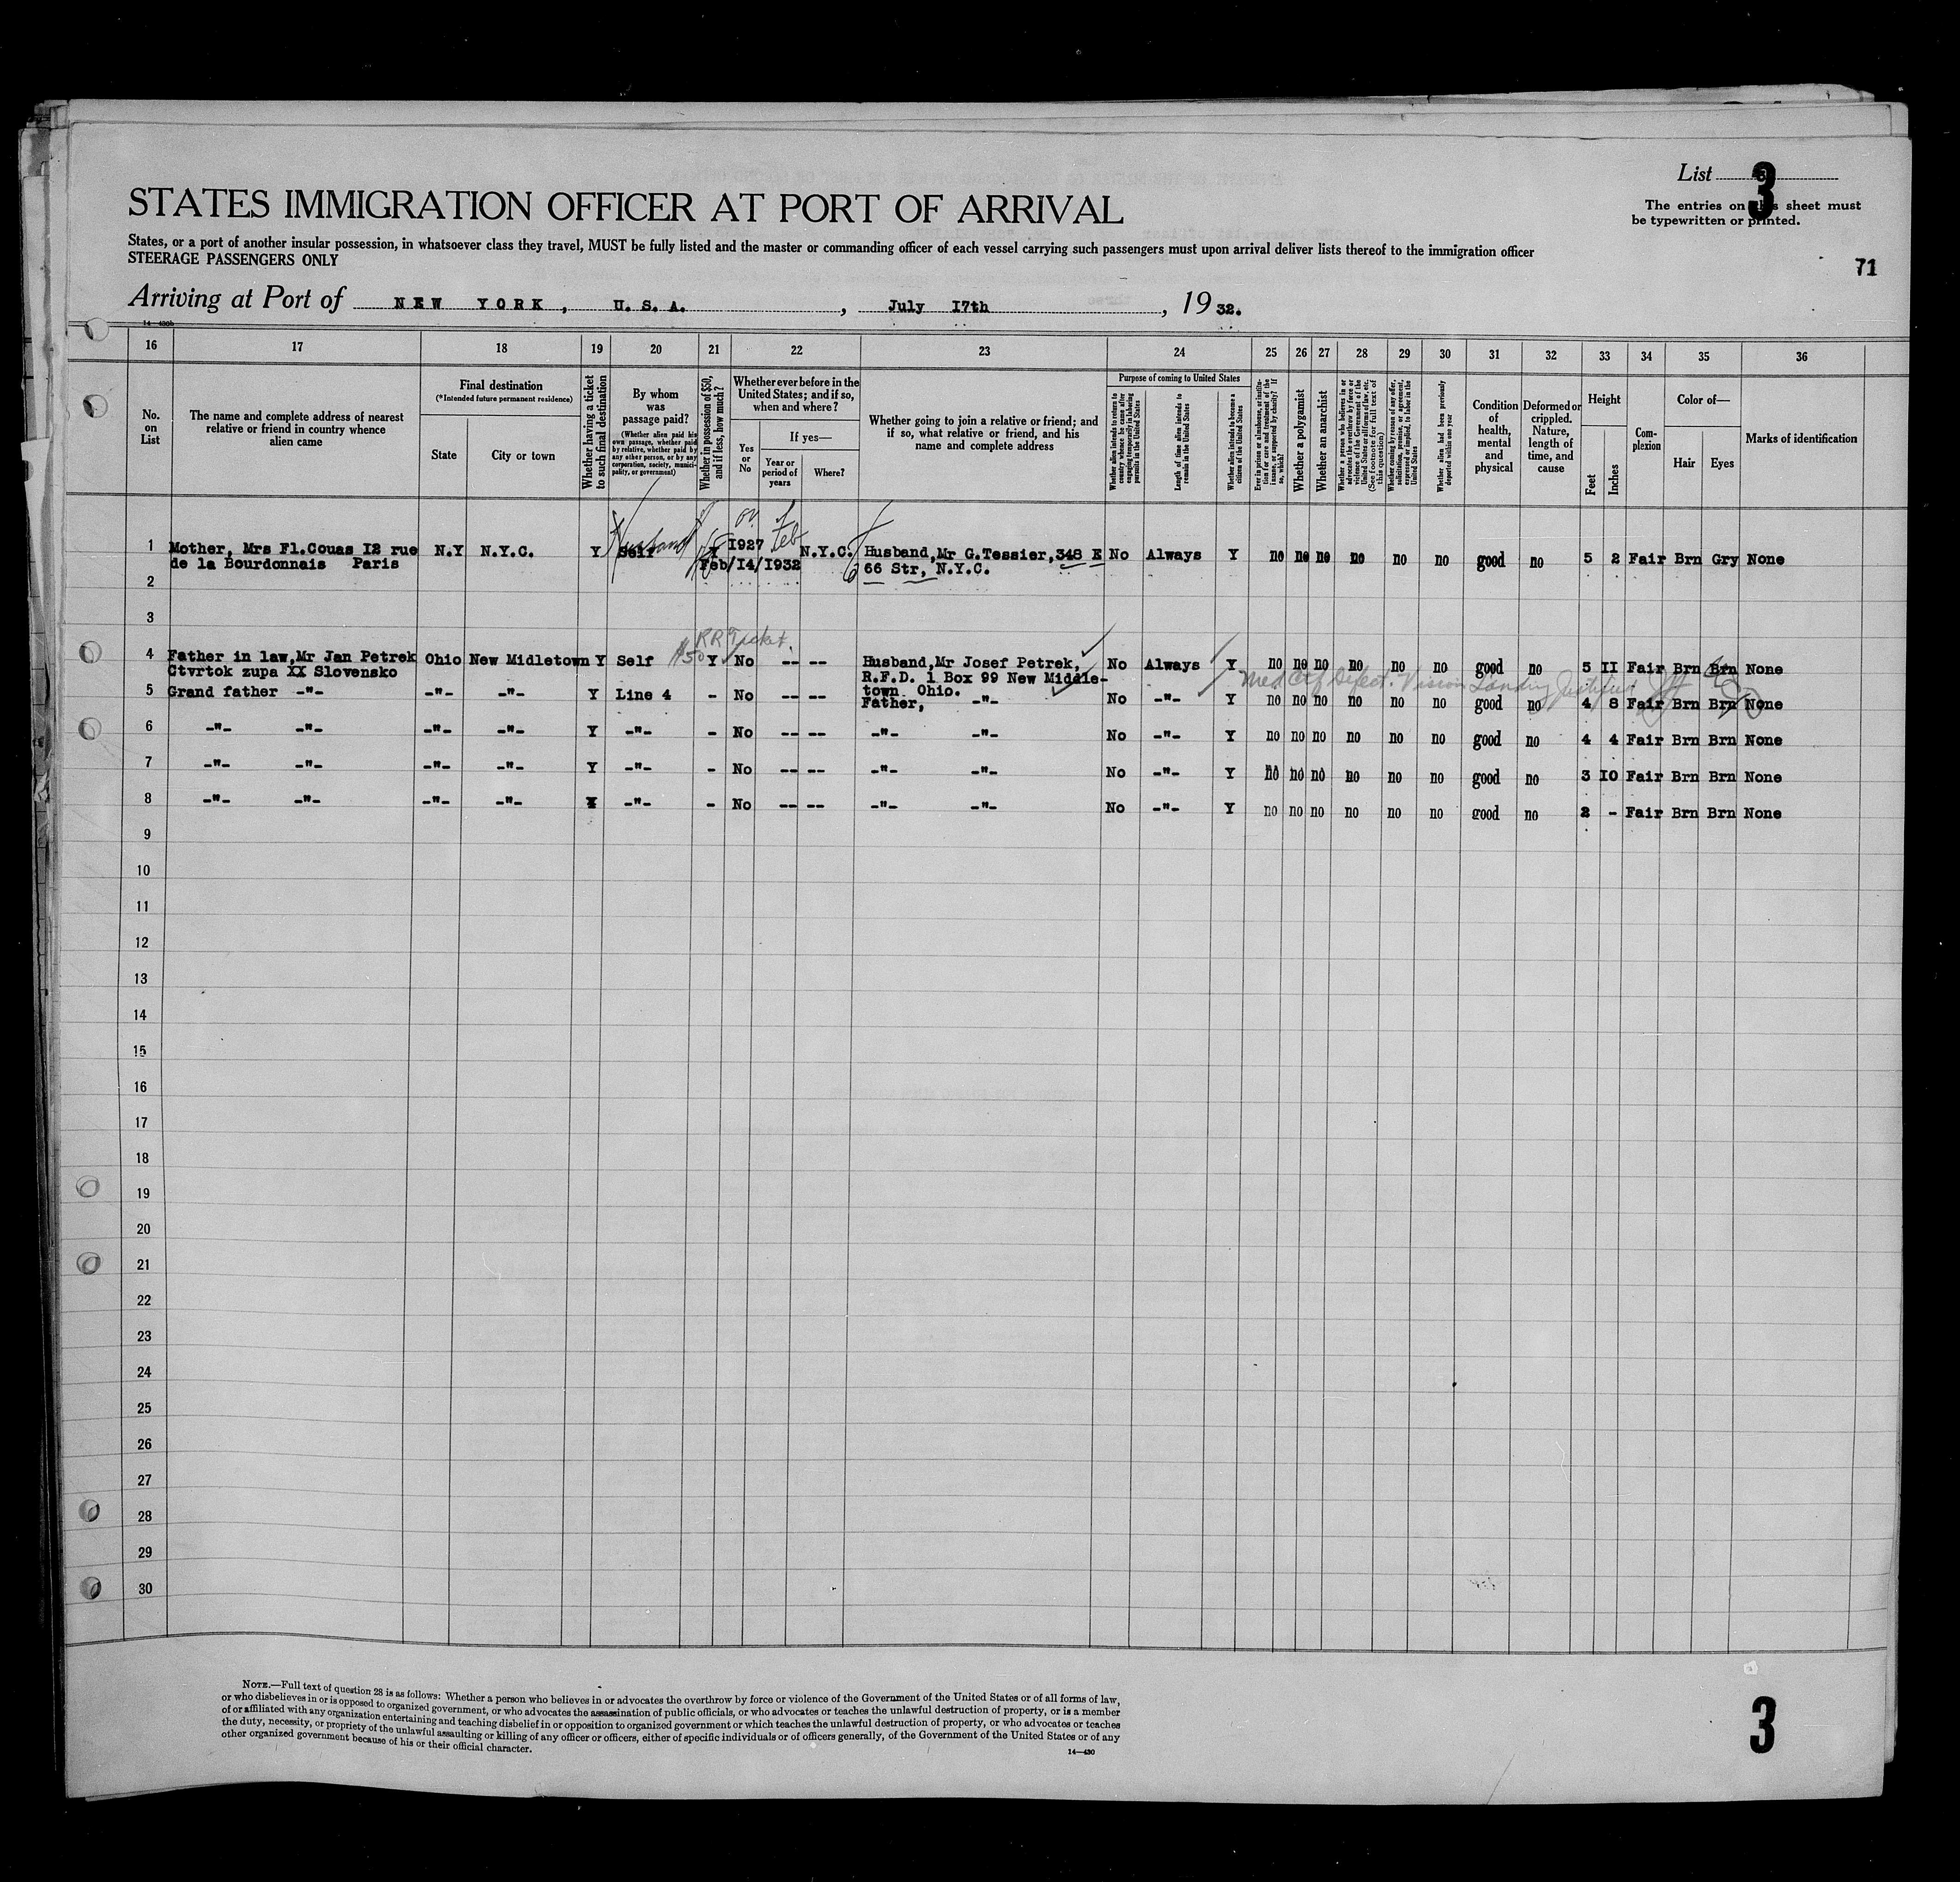 List 3
The entries on this sheet must
be typewritten or printed.
STATES IMMIGRATION OFFICER AT PORT OF ARRIVAL
States, or a port of another insular possession, in whatsoever class they travel, MUST be fully listed and the master or commanding officer of each vessel carrying such passengers must upon arrival deliver lists thereof to the immigration officer
STEERAGE PASSENGERS ONLY
71
Arriving at Port of NEW YORK, U.S.A. , July I7th , 19 32.
14—430b
16 17 18 19 20 21 22 23 24 25 26 27 28 29 30 31 32 33 34 35 36
No. on List
The name and complete address of nearest relative or friend in country whence alien came
Final destination
(*Intended future permanent residence)
State
City or town
Whether having a ticket to such final destination
By whom was passage paid?
(Whether alien paid his own passage, whether paid by relative, whether paid by any other person, or by any corporation, society, municipality, or government)
Whether in possession of $50, and if less, how much?
Whether ever before in the United States; and if so, when and where?
Yes or No
If yes—
Year or period of years
Where?
Whether going to join a relative or friend; and if so, what relative or friend, and his name and complete address
Purpose of coming to United States
Whether alien intends to return to country whence he came after engaging temporarily in laboring pursuits in the United States
Length of time alien intends to remain in the United States
Whether alien intends to become a citizen of the United States
Ever in prison or almshouse, or institution for care and treatment of the insane, or supported by charity? If so, which?
Whether a polygamist
Whether an anarchist
Whether a person who believes in or advocates the overthrow by force or violence of the Government of the United States or all forms of law, etc. (See footnote for full text of this question)
Whether coming by reason of any offer, solicitation, promise, or agreement, expressed or implied, to labor in the United States
Whether alien had been previously deported within one year
Condition of health, mental and physical
Deformed or crippled. Nature, length of time, and cause
Height
Feet
Inches
Complexion
Color of—
Hair
Eyes
Marks of identification
Husband Feb
1 Mother, Mrs Fl.Couas I2 rue N.Y N.Y.C. Y Self Y I927 N.Y.C. Husband,Mr G.Tessier,348 E No Always Y no no no no no no good no 5 2 Fair Brn Gry None
de la Bourdonnais Paris Feb/I4/I932 66 Str, N.Y.C.
2
3
$50 RR Ticket.
4 Father in law,Mr Jan Petrek Ohio New Midletown Y Self Y No -- -- Husband,Mr Josef Petrek, No Always Y no no no no no no good no 5 II Fair Brn Brn None
Ctvrtok zupa XX Slovensko R.F.D. 1 Box 99 New Middle-
town Ohio.
Med Ctf Defect. Vision Landing Justified
5 Grand father -"- -"- -"- Y Line 4 - No -- -- Father, -"- No -"- Y no no no no no no good no 4 8 Fair Brn Brn None
6 -"- -"- -"- -"- Y -"- - No -- -- -"- -"- No -"- Y no no no no no no good no 4 4 Fair Brn Brn None
7 -"- -"- -"- -"- Y -"- - No -- -- -"- -"- No -"- Y no no no no no no good no 3 IO Fair Brn Brn None
8 -"- -"- -"- -"- Y -"- - No -- -- -"- -"- No -"- Y no no no no no no good no 2 - Fair Brn Brn None
9
10
11
12
13
14
15
16
17
18
19
20
21
22
23
24
25
26
27
28
29
30
NOTE.—Full text of question 28 is as follows: Whether a person who believes in or advocates the overthrow by force or violence of the Government of the United States or of all forms of law,
or who disbelieves in or is opposed to organized government, or who advocates the assassination of public officials, or who advocates or teaches the unlawful destruction of property, or is a member
of or affiliated with any organization entertaining and teaching disbelief in or opposition to organized government or which teaches the unlawful destruction of property, or who advocates or teaches
the duty, necessity, or propriety of the unlawful assaulting or killing of any officer or officers, either of specific individuals or of officers generally, of the Government of the United States or of any
other organized government because of his or their official character.
14—430
3